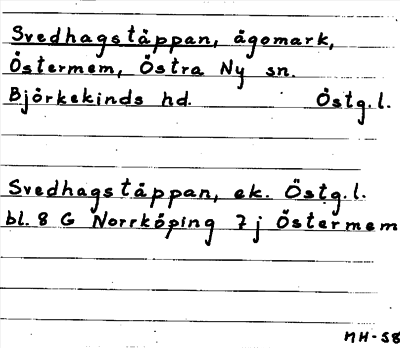 Svedhagstäppan, ägomark,
Östermem, Östra Ny sn.
Björkekinds hd. Östg.l.
Svedhagstäppan, ek. Östg.l.
bl. 8 G Norrköping 7j Östermem
MH-58